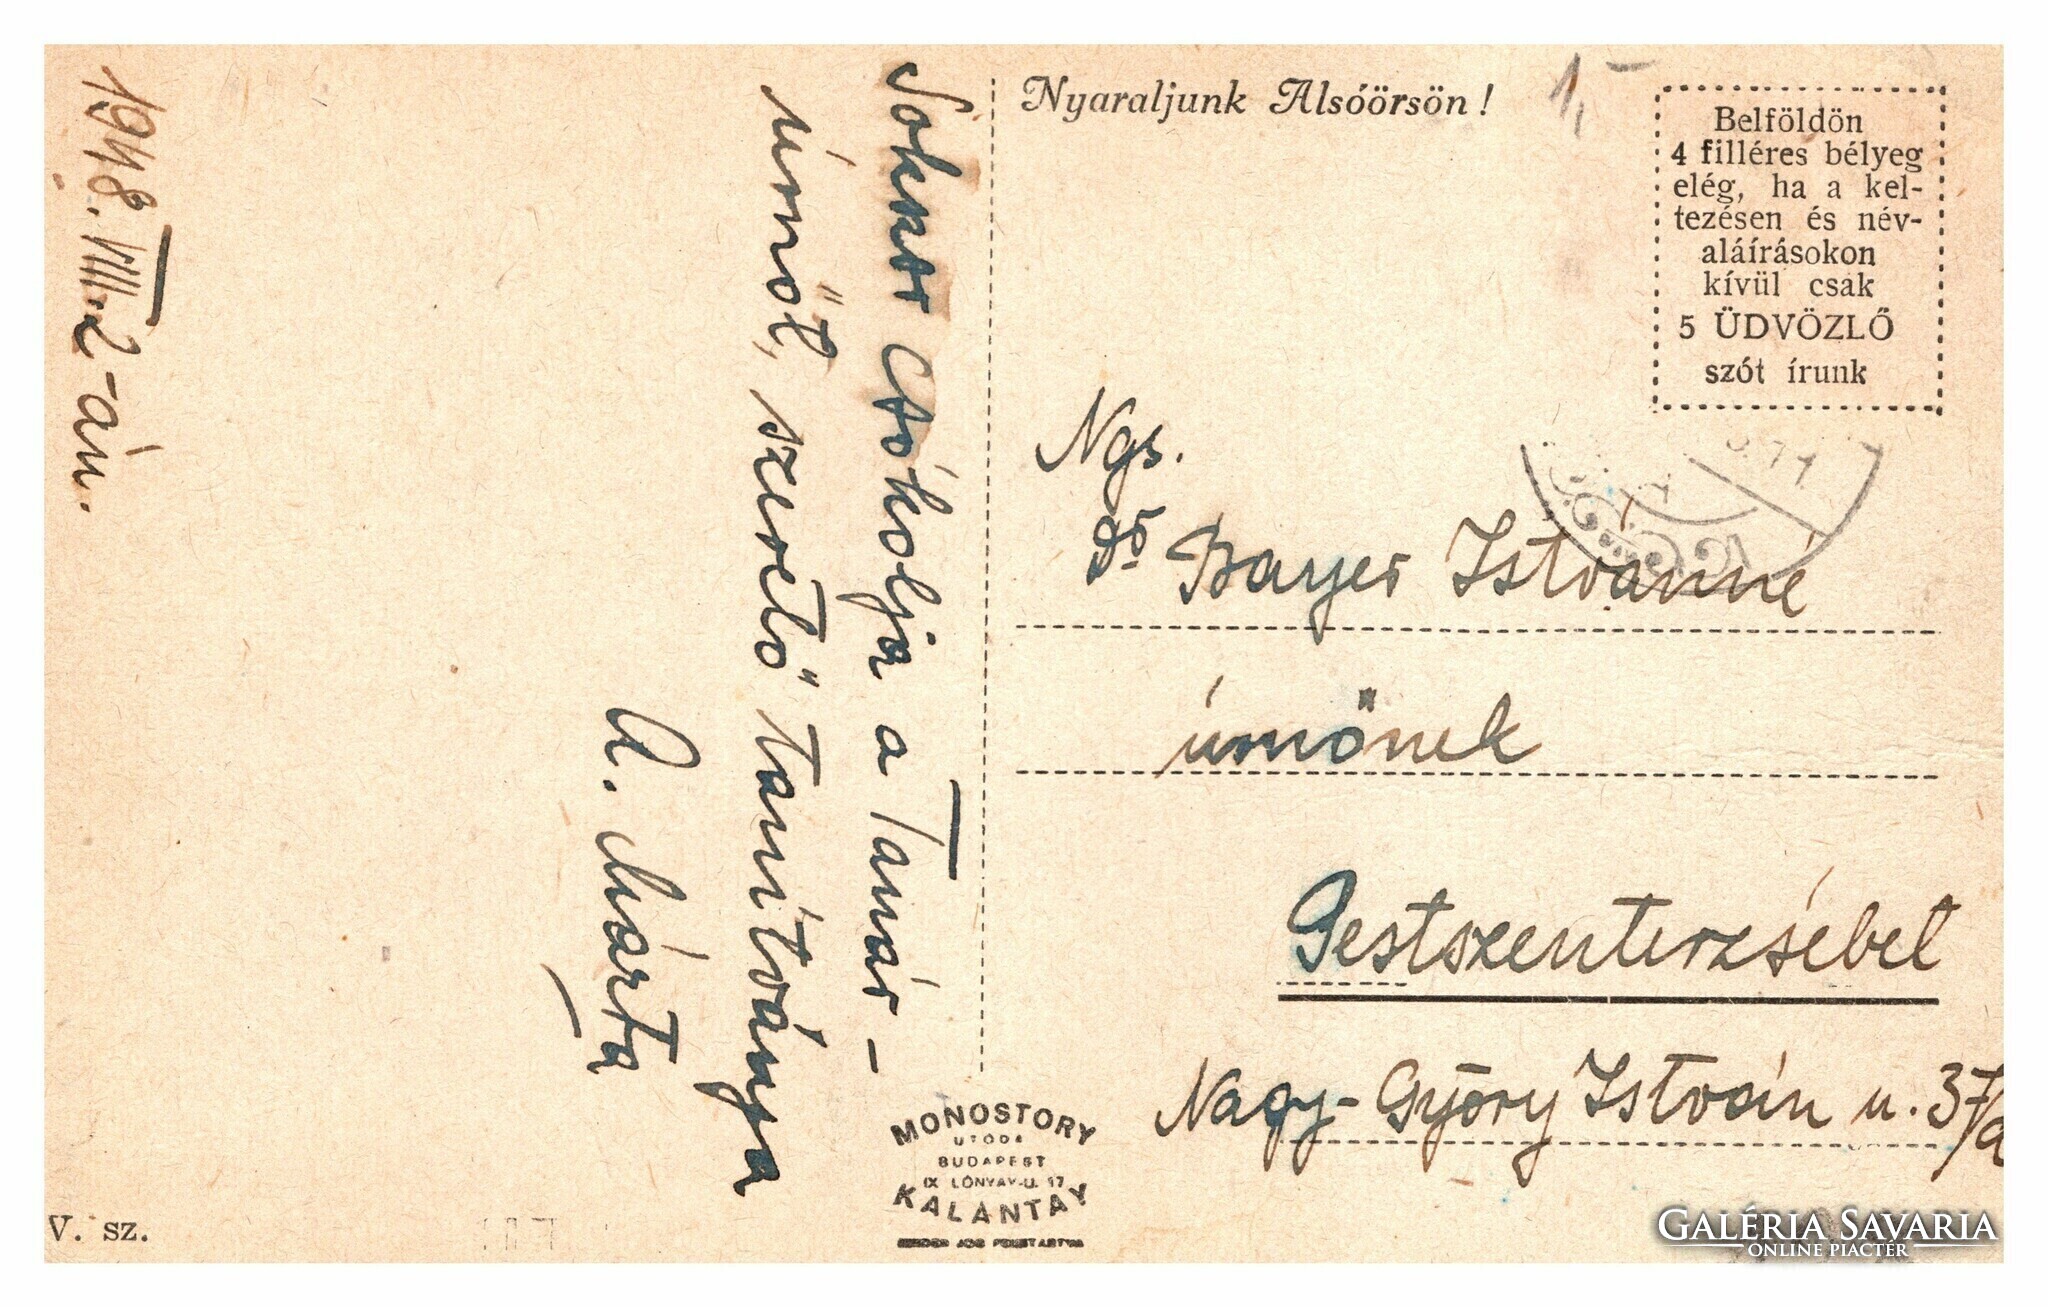 1948. VIII. 2-án.
Sokszor csókolja a Tanár-
úrnőt, szerető tanítványa
A. Márta
Nyaraljunk Alsóörsön!
1,-
Belföldön
4 filléres bélyeg
elég, ha a kel-
tezésen és név-
aláírásokon
kívül csak
5 ÜDVÖZLŐ
szót írunk
Ngs.
dr. Bayer Istvánné
úrnőnek
Pestszenterzsébet
Nagy-Győry István u. 37/a
MONOSTORY
UTÓDA
BUDAPEST
IX LÓNYAY-U. 17
KALÁNTAY
MINDEN JOG FENNTARTVA
V. sz.
GALÉRIA SAVARIA
ONLINE PIACTÉR